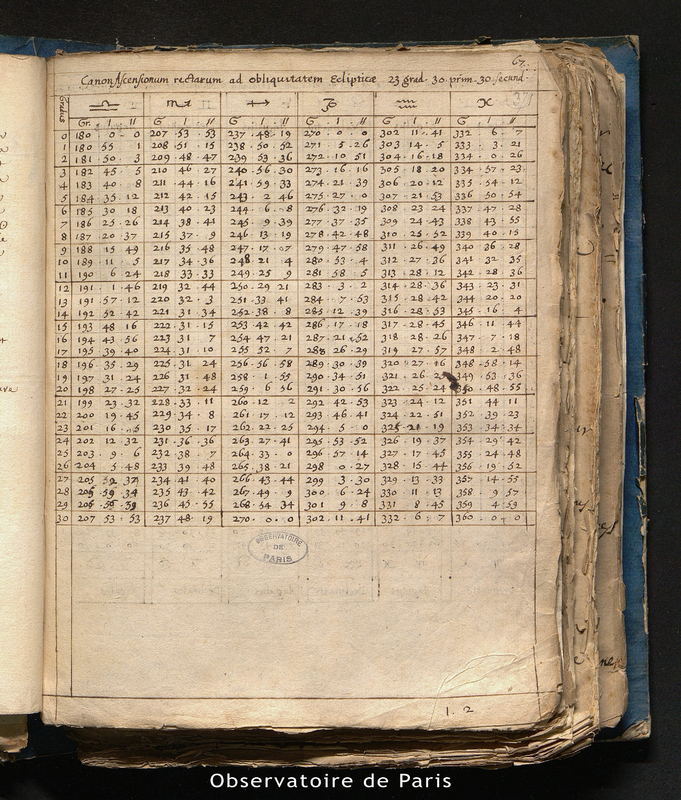 67.
Canon Ascensionum rectarum ad obliquitatem Eclipticæ 23 grad. 30 prim. 30 secund.
Gradus ♎ ♏ ♐ ♑ ♒ ♓
Gr. I II G I II G I II G I II G I II G I II
0 180 0 0 207 53 53 237 48 19 270 0 0 302 11 41 332 6 7
1 180 55 1 208 51 15 238 50 52 271 5 26 303 14 5 333 3 21
2 181 50 3 209 48 47 239 53 36 272 10 51 304 16 18 334 0 26
3 182 45 5 210 46 27 240 56 30 273 16 16 305 18 20 334 57 23
4 183 40 8 211 44 16 241 59 33 274 21 39 306 20 12 335 54 12
5 184 35 12 212 42 15 243 2 46 275 27 0 307 21 53 336 50 54
6 185 30 18 213 40 23 244 6 8 276 32 19 308 23 24 337 47 28
7 186 25 26 214 38 41 245 9 39 277 37 35 309 24 43 338 43 55
8 187 20 37 215 37 9 246 13 19 278 42 48 310 25 52 339 40 15
9 188 15 49 216 35 48 247 17 7 279 47 58 311 26 49 340 36 28
10 189 11 5 217 34 36 248 21 4 280 53 4 312 27 36 341 32 35
11 190 6 24 218 33 33 249 25 9 281 58 5 313 28 12 342 28 36
12 191 1 46 219 32 44 250 29 21 283 3 2 314 28 36 343 23 31
13 191 57 12 220 32 3 251 33 41 284 7 53 315 28 42 344 20 20
14 192 52 42 221 31 34 252 38 8 285 12 39 316 28 53 345 16 4
15 193 48 16 222 31 15 253 42 42 286 17 18 317 28 45 346 11 44
16 194 43 56 223 31 7 254 47 21 287 21 52 318 28 26 347 7 18
17 195 39 40 224 31 10 255 52 7 288 26 29 319 27 57 348 2 48
18 196 35 29 225 31 24 256 56 58 289 30 39 320 27 16 348 58 14
19 197 31 24 226 31 48 258 1 55 290 34 51 321 26 25 349 53 36
20 198 27 25 227 32 24 259 6 56 291 30 56 322 25 24 350 48 55
21 199 23 32 228 33 11 260 12 2 292 42 53 323 24 12 351 44 11
22 200 19 45 229 34 8 261 17 12 293 46 41 324 22 51 352 39 23
23 201 16 5 230 35 17 262 22 25 294 5 0 325 21 19 353 34 34
24 202 12 32 231 36 36 263 27 41 295 53 52 326 19 37 354 29 42
25 203 9 6 232 38 7 264 33 0 296 57 14 327 17 45 355 24 48
26 204 5 48 233 39 48 265 38 21 298 0 27 328 15 44 356 19 52
27 205 2 37 234 41 40 266 43 44 299 3 30 329 13 33 357 14 55
28 205 59 34 235 43 42 267 49 9 300 6 24 330 11 13 358 9 57
29 206 59 39 236 45 55 268 54 34 301 9 8 331 8 45 359 4 59
30 207 53 53 237 48 19 270 0 0 302 11 41 332 6 7 360 0 0
OBSERVATOIRE
DE
PARIS
1. 2
Observatoire de Paris